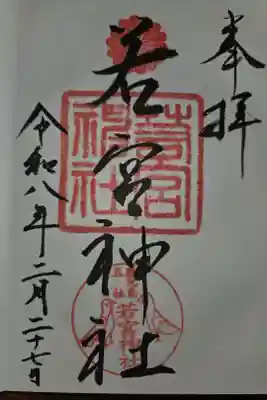 奉拝
若宮神社
令和八年二月二十七日
若宮神社